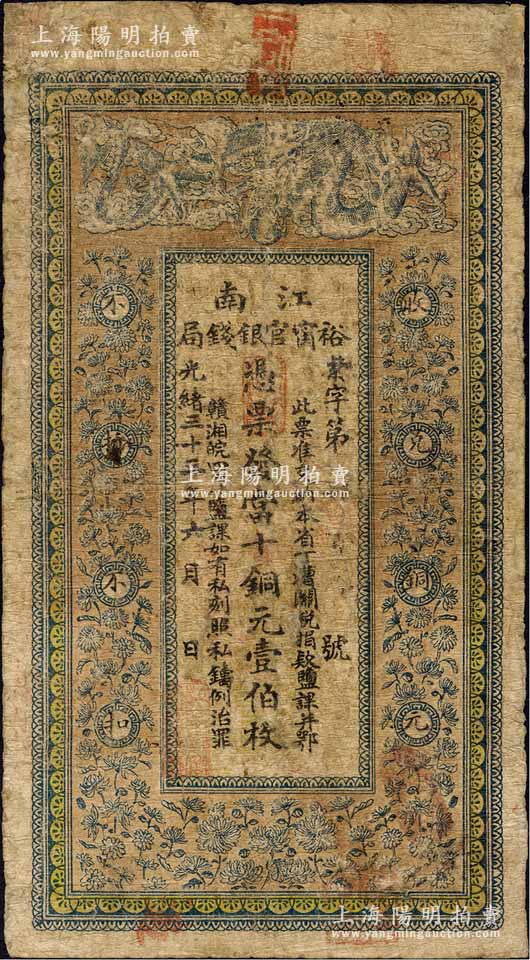 上海陽明拍賣
www.yangmingauction.com
江南
裕甯官銀錢局
字第 號
此票准 本省丁漕關稅捐欵鹽課并鄂
憑票發當十銅元壹伯枚
贛湘皖 鹽課如有私刻照私鑄例治罪
光緒三十 年十六月 日
收兌銅元
不 不扣
上海陽明拍賣
www.yangmingauction.com
上海陽明拍賣
www.yangmingauction.com